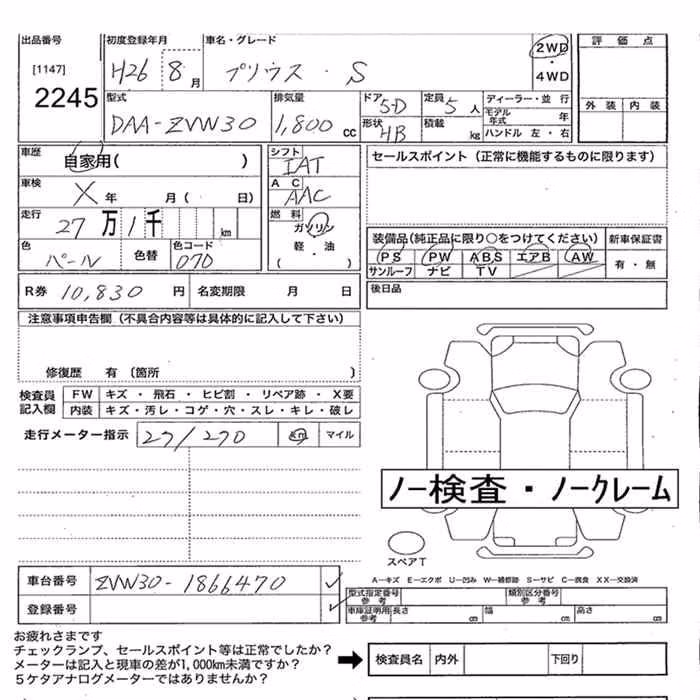 出品番号 初度登録年月 車名・グレード 2WD ・ 4WD 評価点
[1147] 2245 H26 8月 プリウス・S 外装 内装
型式 排気量 ドア 5D 定員 5人 ディーラー・並行
DAA-ZVW30 1,800cc 形状 HB 積載 kg モデル年式 年
ハンドル 左・右
車歴 自家用( ) シフト IAT セールスポイント(正常に機能するものに限ります)
車検 X年 月( 日) AC AAC
走行 27万1千 km 燃料 ガソリン 軽・油 ( )
装備品(純正品に限り○をつけてください) 新車保証書
色 パール 色替 色コード 070 PS PW ABS エアB AW 有・無
サンルーフ ナビ TV
R券 10,830円 名変期限 月 日 後日品
注意事項申告欄(不具合内容等は具体的に記入して下さい)
修復歴 有(箇所 )
検査員記入欄 FW キズ・飛石・ヒビ割・リペア跡・X要
内装 キズ・汚レ・コゲ・穴・スレ・キレ・破レ
走行メーター指示 27/270 km マイル
ノー検査・ノークレーム
スペアT
車台番号 ZVW30-1866470 ✓ A-キズ E-エクボ U-凹み W-補修跡 S-サビ C-腐食 XX-交換済
型式指定番号参考 類別区分番号参考
登録番号 ✓ 車庫証明用参考 長さ cm 幅 cm 高さ cm
お疲れさまです
チェックランプ、セールスポイント等は正常でしたか?
メーターは記入と現車の差が1,000km未満ですか? ➡ 検査員名 内外 下回り
5ケタアナログメーターではありませんか?